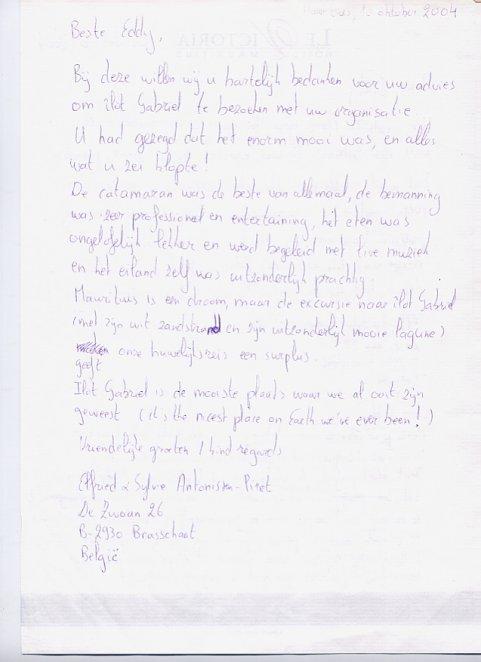 Mauritius, 10 oktober 2004
Beste Eddy,
Bij deze willen wij u hartelijk bedanken voor uw advies
om ilot Gabriel te bezoeken met uw organisatie
U had gezegd dat het enorm mooi was, en alles
wat u zei klopte!
De catamaran was de beste van allemaal, de bemanning
was zeer professioneel en entertaining, het eten was
ongelofelijk lekker en werd begeleid met live muziek
en het eiland zelf was uitzonderlijk prachtig.
Mauritius is een droom, maar de excursie naar ilot Gabriel
(met zijn wit zandstrand en zijn uitzonderlijk mooie lagune)
geeft onze huwelijksreis een surplus.
Ilot Gabriel is de mooiste plaats waar we al ooit zijn
geweest (it's the nicest place on Earth we've ever been!)
Vriendelijke groeten / kind regards
Sylvie Antonissen-Piret
De Zwaan 26
B-2930 Brasschaat
België